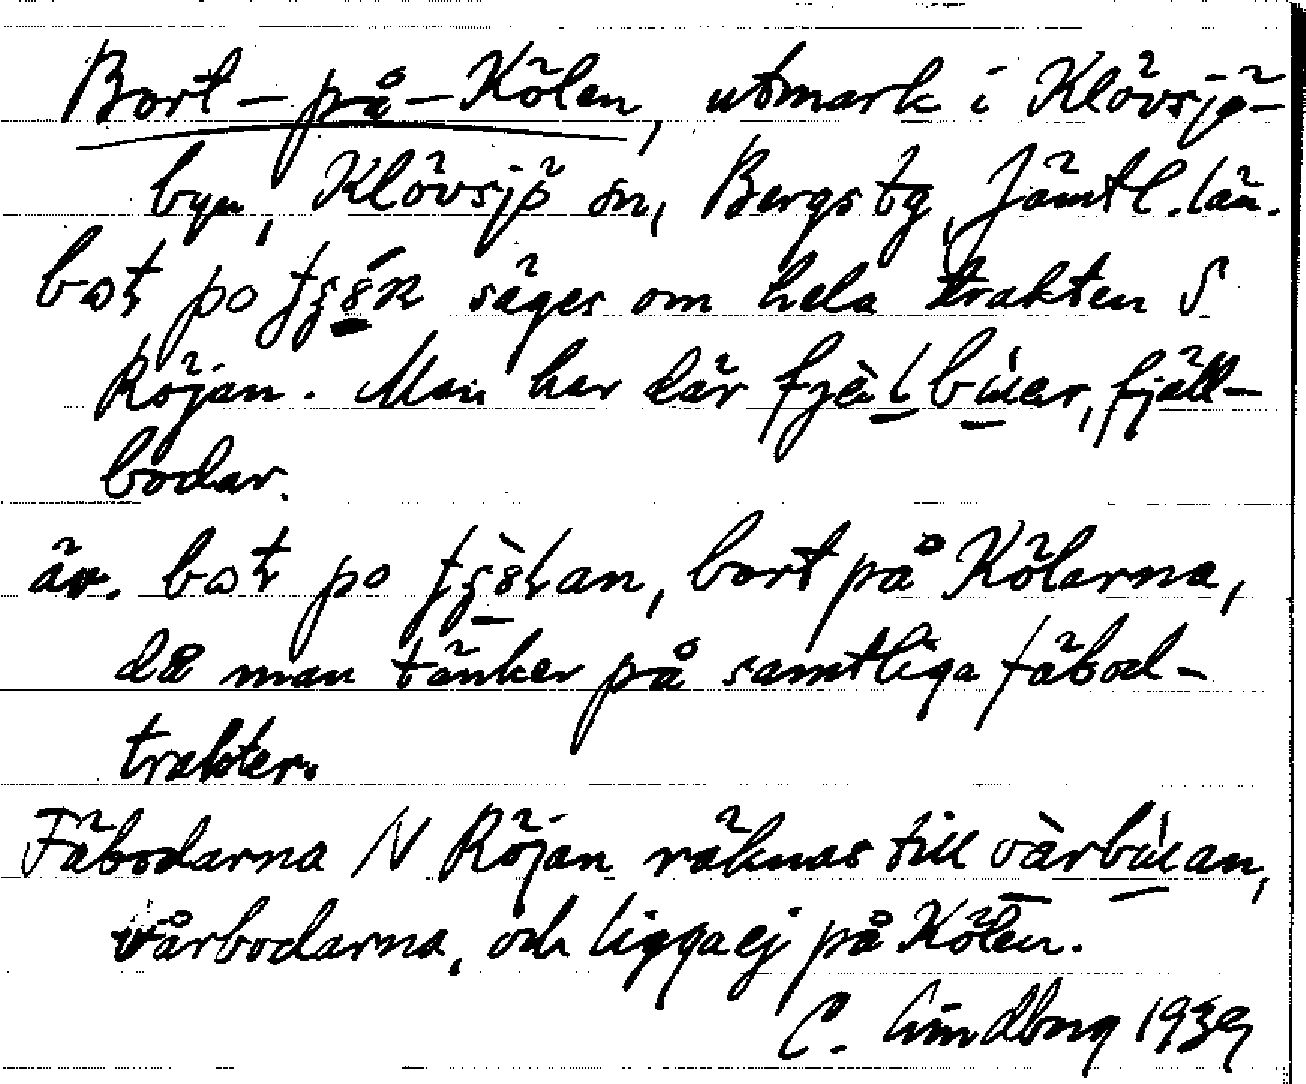 Bort-på-Kölen, utmark i Klövsjö-
byn, Klövsjö sn, Bergs tg, Jämtl. län.
po säges om hela trakten S
Röjan. Man har där fjäll-
bodar.
äv. po bort på Kölarna,
då man tänker på samtliga fäbod-
trakter.
Fäbodarna N Röjan räknas till
vårbodarna, och ligga ej på Kölen.
C. Lindberg 1939